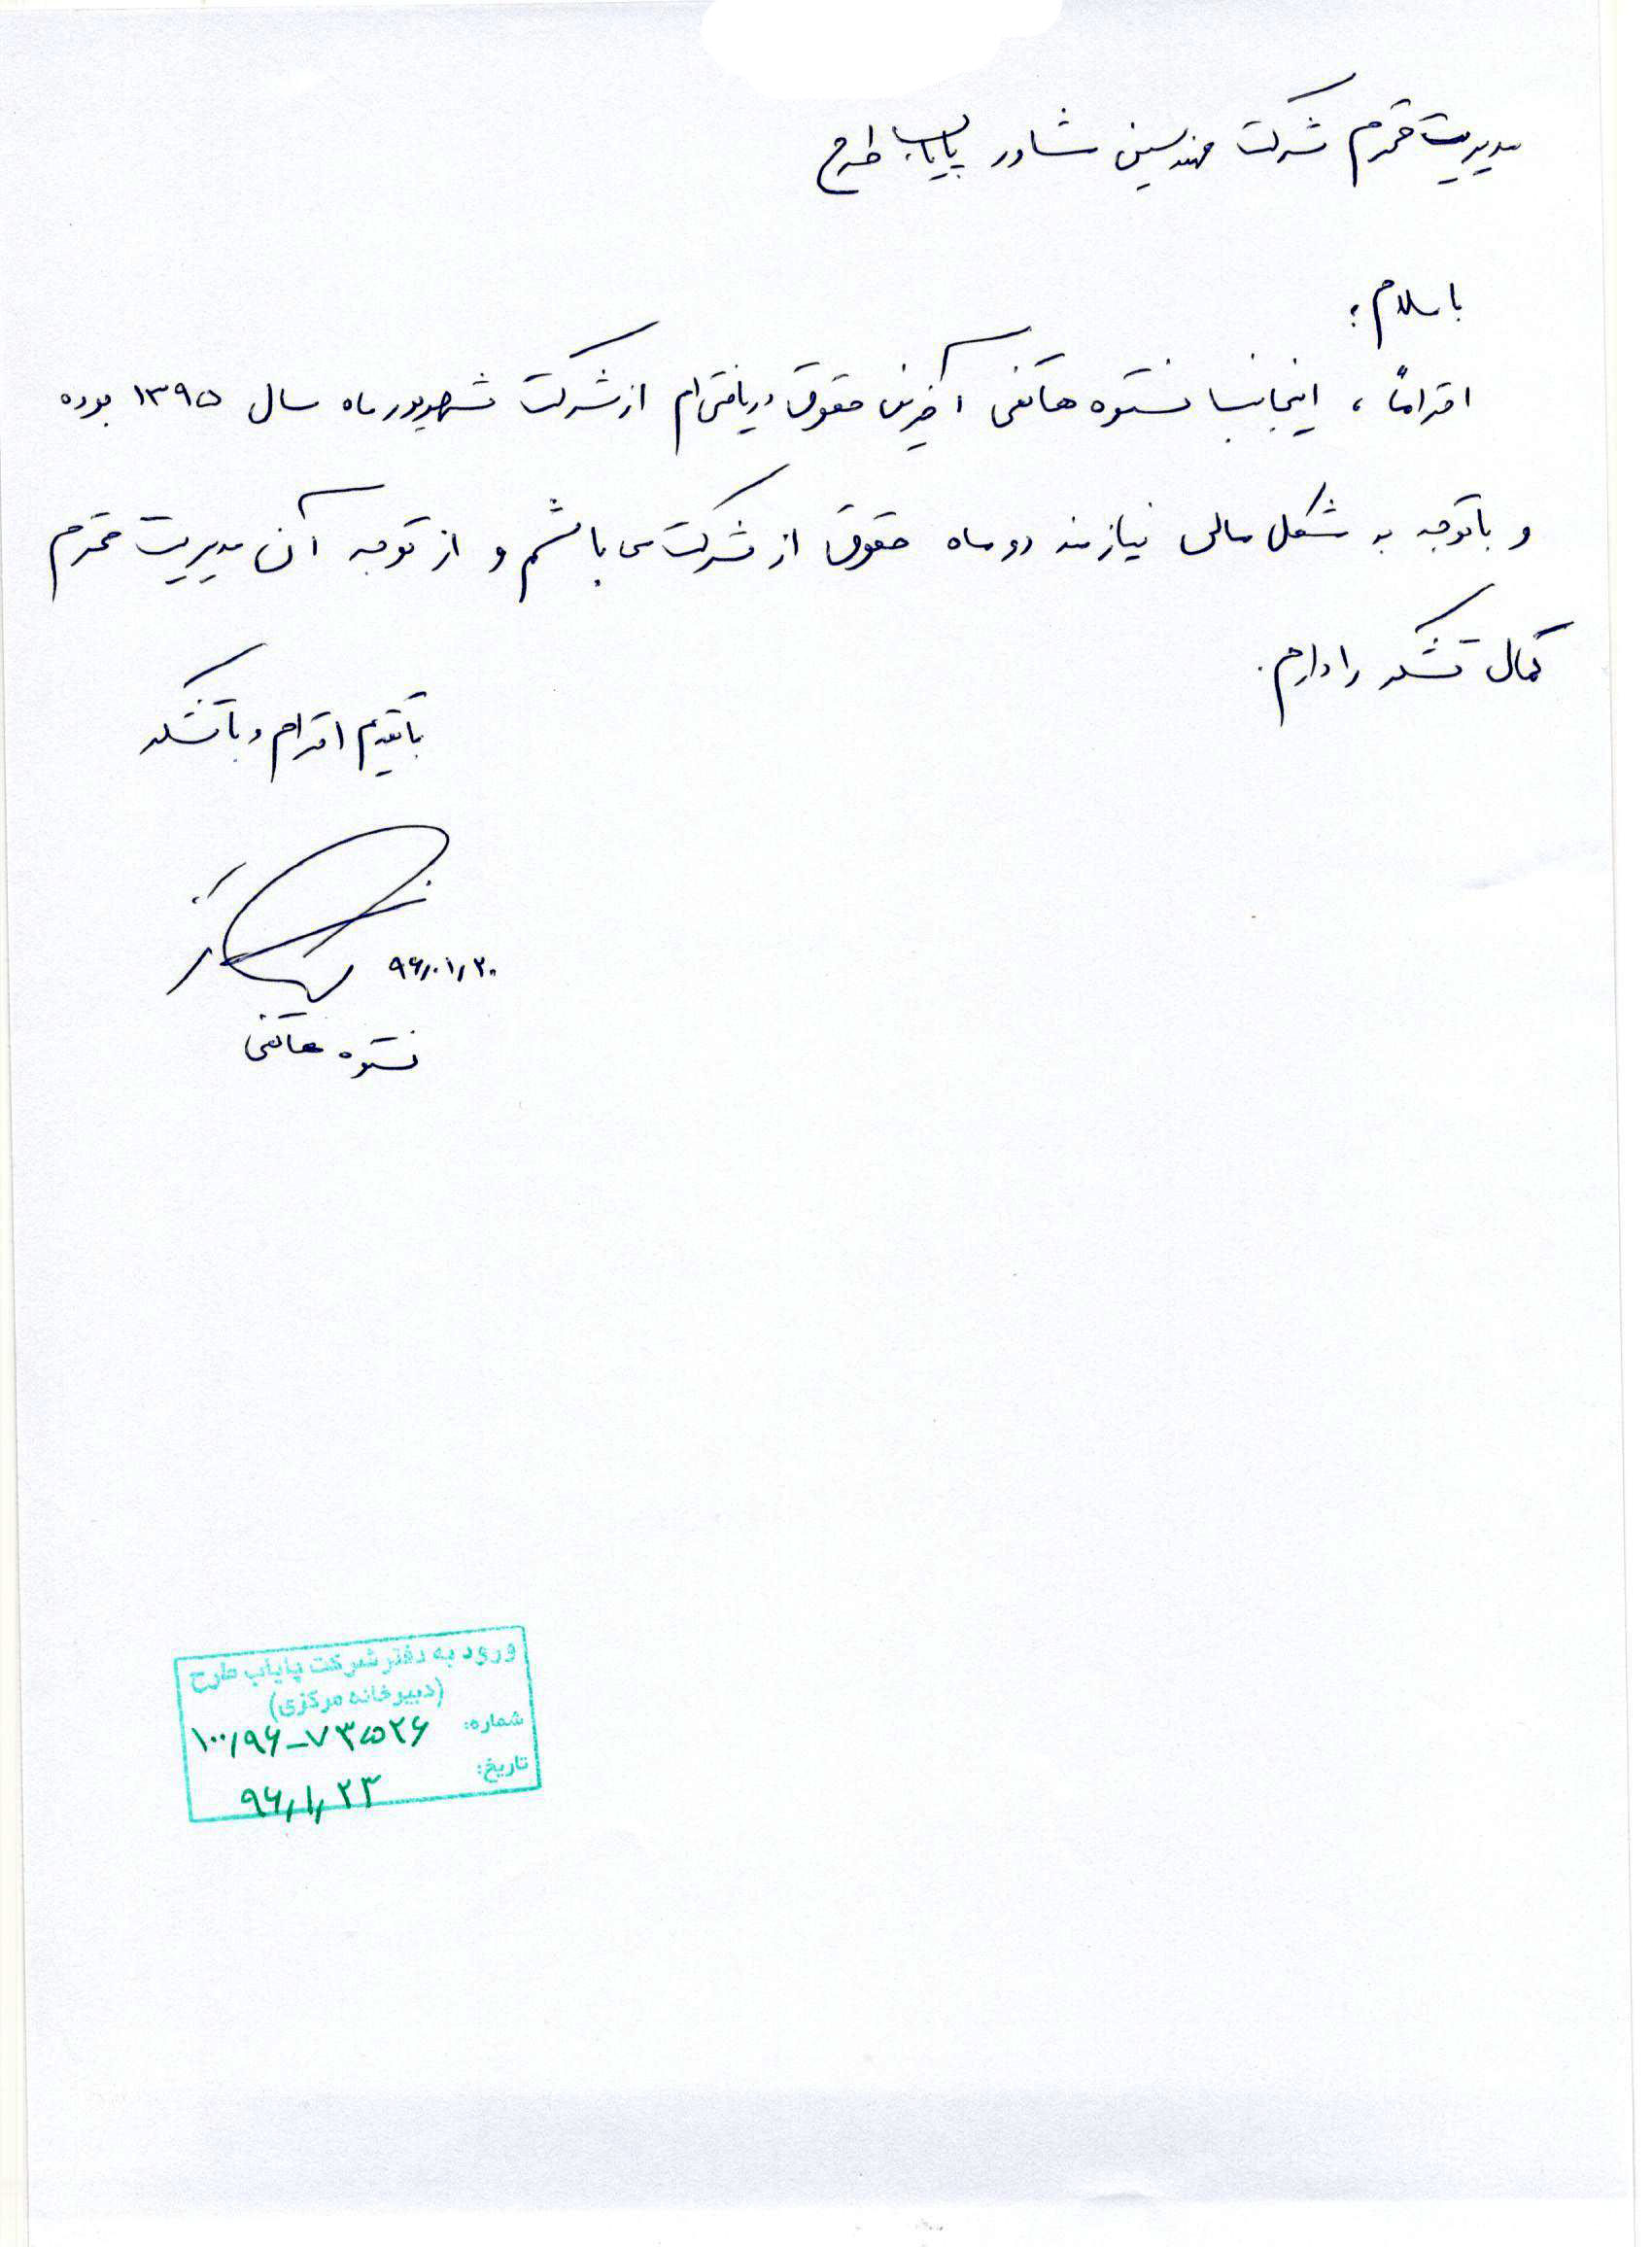 مدیریت محترم شرکت مهندسین مشاور پایاب طرح
با سلام؛
احتراماً، اینجانب نستوه هاتفی آخرین حقوق دریافتی ام از شرکت شهریور ماه سال ۱۳۹۵ بوده
و با توجه به مشکل مالی نیازمند دو ماه حقوق از شرکت می باشم و از توجه آن مدیریت محترم
کمال تشکر را دارم.
با تقدیم احترام و با تشکر
۹۶/۰۱/۲۰
نستوه هاتفی
ورود به دفتر شرکت پایاب طرح
(دبیرخانه مرکزی)
شماره: ۱۰۰/۹۶-۷۳۵۲۶
تاریخ: ۹۶/۱/۲۳